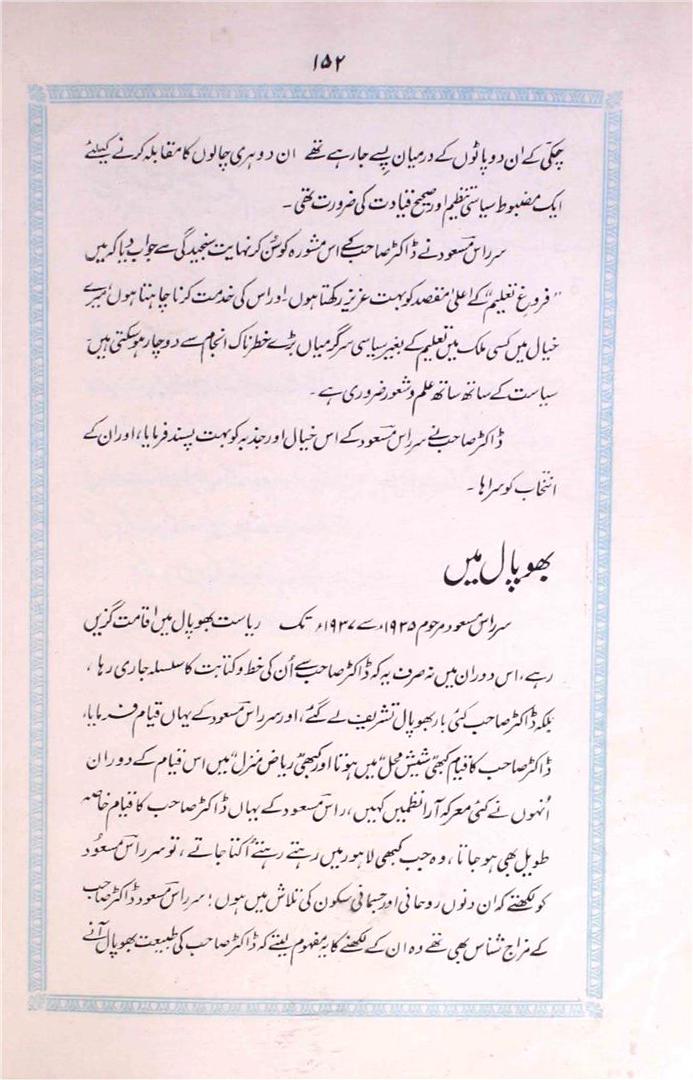 ۱۵۲
چکی کے ان دو پاٹوں کے درمیان پسے جا رہے تھے ان دوہری چالوں کا مقابلہ کرنے کیلئے
ایک مضبوط سیاسی تنظیم اور صحیح قیادت کی ضرورت تھی۔
سر راس مسعود نے ڈاکٹر صاحب کے اس مشورہ کو سُن کر نہایت سنجیدگی سے جواب دیا کہ میں
”فروغِ تعلیم“ کے اعلیٰ مقصد کو بہت عزیز رکھتا ہوں۔ اور اس کی خدمت کرنا چاہتا ہوں میرے
خیال میں کسی ملک میں تعلیم کے بغیر سیاسی سرگرمیاں بڑے خطرناک انجام سے دوچار ہو سکتی ہیں۔
سیاست کے ساتھ ساتھ علم و شعور ضروری ہے۔
ڈاکٹر صاحب نے سر راس مسعود کے اس خیال اور جذبہ کو بہت پسند فرمایا، اور ان کے
انتخاب کو سراہا۔
بھوپال میں
سر راس مسعود مرحوم ۱۹۳۵ء سے ۱۹۳۷ء تک ریاست بھوپال میں اقامت گزیں
رہے، اس دوران میں نہ صرف یہ کہ ڈاکٹر صاحب سے اُن کی خط و کتابت کا سلسلہ جاری رہا،
بلکہ ڈاکٹر صاحب کئی بار بھوپال تشریف لے گئے، اور سر راس مسعود کے یہاں قیام فرمایا،
ڈاکٹر صاحب کا قیام کبھی ”شیش محل“ میں ہوتا اور کبھی ”ریاض منزل“ میں اس قیام کے دوران
اُنہوں نے کئی معرکہ آرا نظمیں کہیں، راس مسعود کے یہاں ڈاکٹر صاحب کا قیام خاصہ
طویل بھی ہو جاتا، وہ جب کبھی لاہور میں رہتے رہتے اُکتا جاتے، تو سر راس مسعود
کو لکھتے کہ ان دنوں روحانی اور جسمانی سکون کی تلاش میں ہوں؛ سر راس مسعود ڈاکٹر صاحب
کے مزاج شناس بھی تھے وہ ان کے لکھنے کا یہ مفہوم لیتے کہ ڈاکٹر صاحب کی طبیعت بھوپال آنے